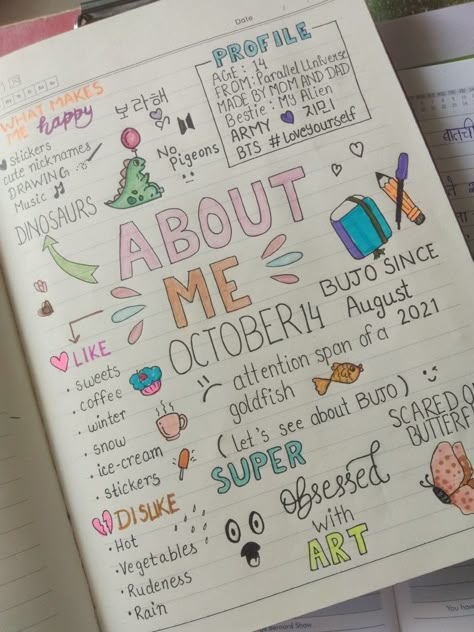 Date
PROFILE
AGE: 14
FROM: Parallel Universe
MADE BY MOM AND DAD
Bestie: My Alien
ARMY 지미
BTS #LoveYourself
WHAT MAKES
ME happy
stickers
cute nicknames
DRAWING
Music
DINOSAURS
보라해
No
Pigeons
ABOUT
ME
OCTOBER 14
BUJO SINCE
August
2021
attention span of a
goldfish
(let's see about BUJO)
LIKE
• sweets
• coffee
• winter
• snow
• ice-cream
• stickers
DISLIKE
• Hot
• Vegetables
• Rudeness
• Rain
SUPER
obsessed
with
ART
SCARED O
BUTTERF
Bernard Shaw
You have